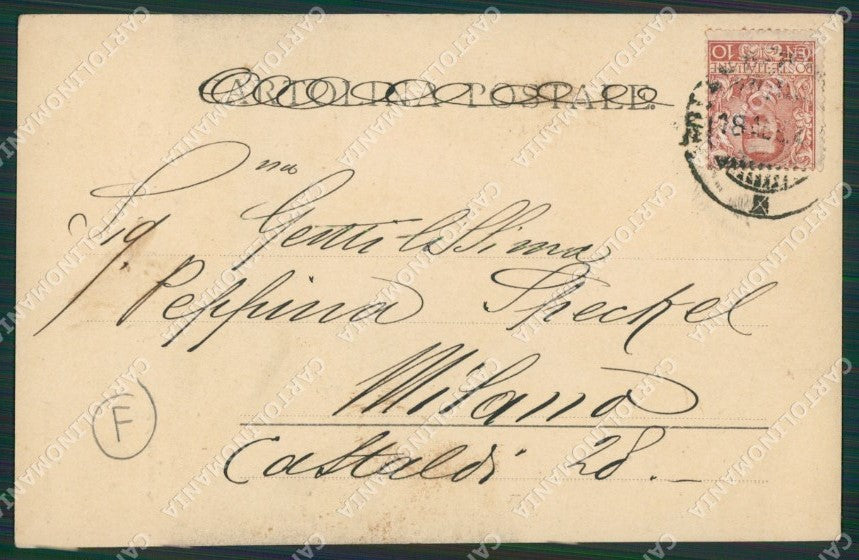 CARTOLINA POSTALE.
Sig.na Gentilissima
Peppina Speckel
Milano
Castaldi 28.-
F
CARTOLINOMANIA